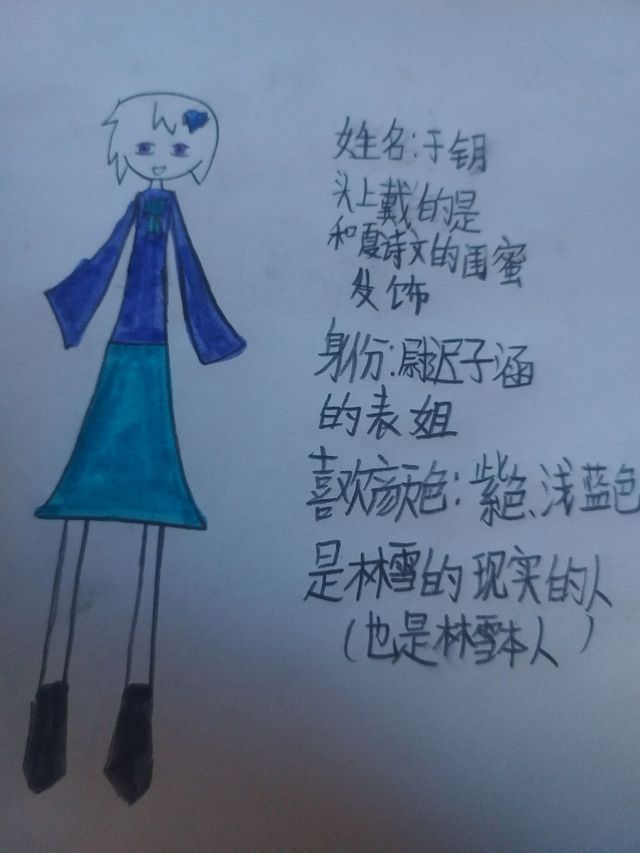 姓名:于钥
头上戴的是
和夏诗文的闺蜜
发饰
身份:尉迟子涵
的表姐
喜欢颜色:紫色、浅蓝色
是林雪的现实的人
(也是林雪本人)